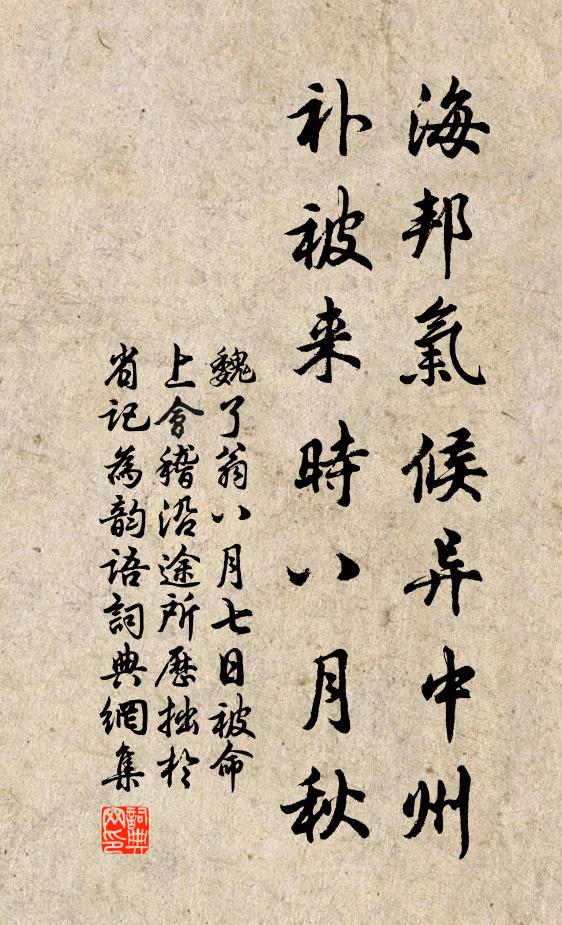 海邦氣候异中州
补被来時八月秋
魏了翁八月七日被命
上會稽沿途所歷拙於
省记為韵语詞典網集
詞典網印